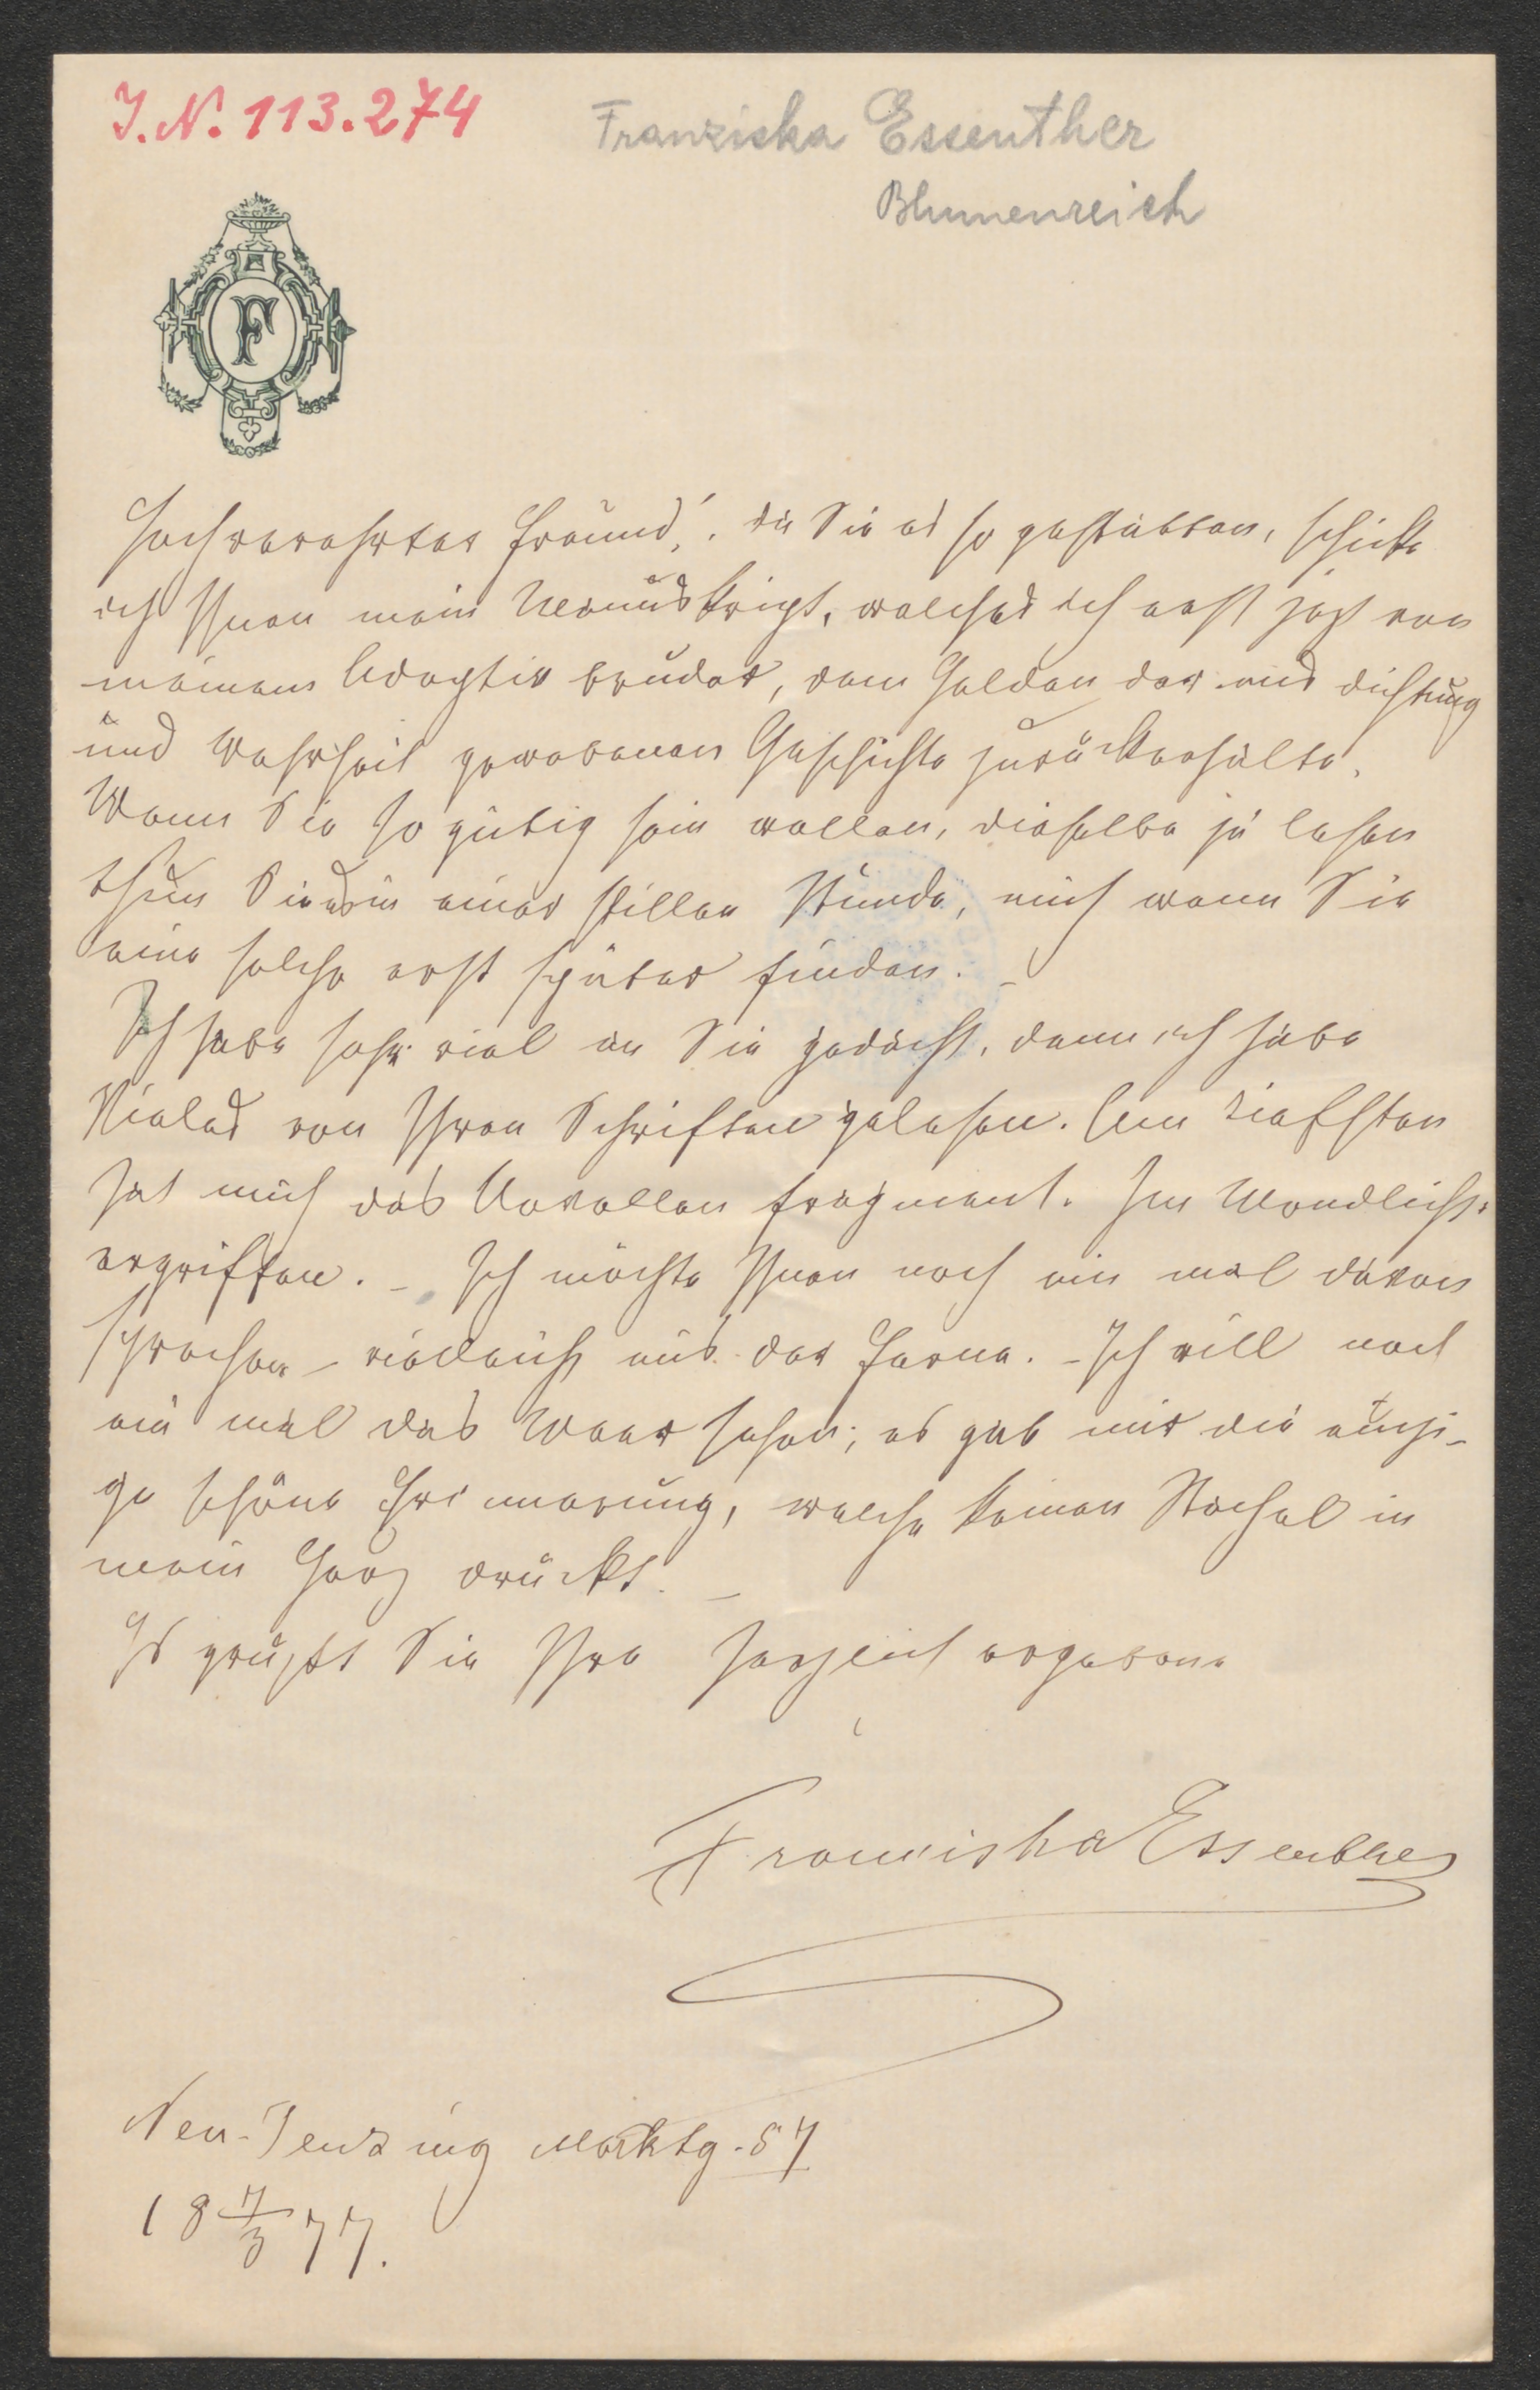 I.N. 113.274
Franziska Essenther
Blumenreich
F
Hochverehrter Freund! da Sie es so gestatten, schicke
ich Ihnen mein Manuskript, welches ich erst jezt von
meinem Adoptiv bruder, dem Helden der aus Dichtung
und Wahrheit gewobenen Geschichte zurückerhalte.
Wenn Sie so gütig sein wollen, dieselbe zu lesen
thun Sie es in einer stillen Stunde, auch wenn Sie
eine solche erst später finden. –
Ich habe sehr viel an Sie gedacht, denn ich habe
Vieles von Ihren Schriften gelesen. Am tiefsten
hat mich das Novellen fragment. Im Mondlicht.
ergriffen. – Ich möchte Ihnen noch ein mal davon
sprechen – vielleicht aus der Ferne. – Ich will noch
ein mal das Meer sehen; es gab mir die einzi-
ge schöne Erinnerung, welche keinen Stachel in
mein Herz drückt. –
Es grüßt Sie Ihre herzlich ergebene
Franziska Essenther
Neu-Penzing Marktg. 57
18 7/3 77.